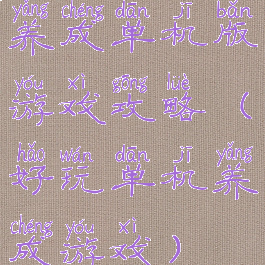 yǎng chéng dān jī bǎn
养成单机版
yóu xì gōng lüè
游戏攻略（
hǎo wán dān jī yǎng
好玩单机养
chéng yóu xì
成游戏）